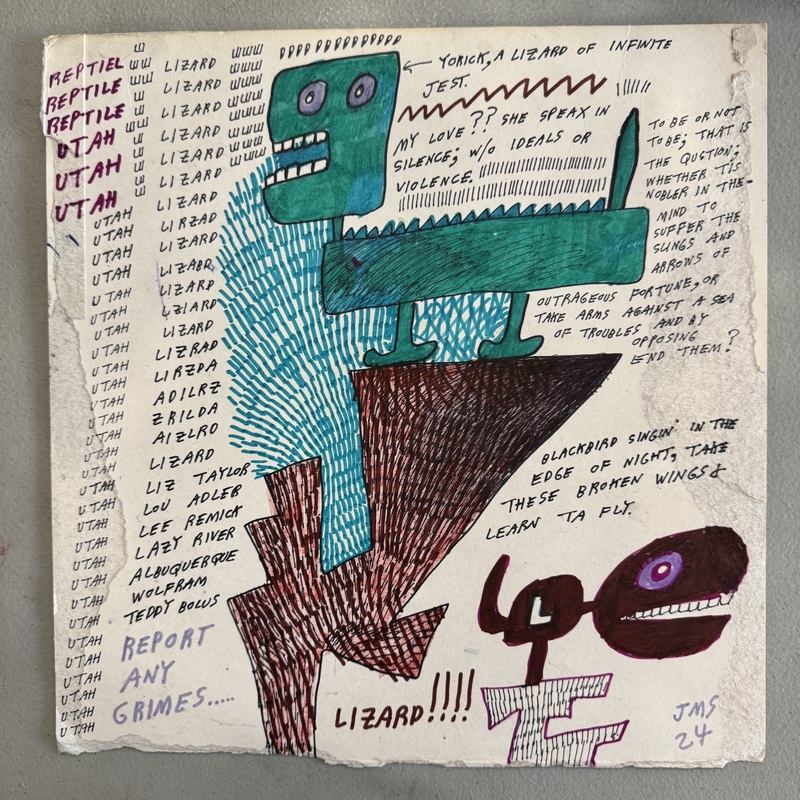 REPTIEL
REPTILE
REPTILE
UTAH
UTAH
UTAH
UTAH
UTAH
UTAH
UTAH
UTAH
UTAH
UTAH
UTAH
UTAH
UTAH
UTAH
UTAH
UTAH
UTAH
UTAH
UTAH
UTAH
UTAH
UTAH
UTAH
UTAH
UTAH
UTAH
UTAH
UTAH
UTAH
UTAH
UTAH
LIZARD
LIZARD
LIZARD
LIZARD
LIZARD
LIZARD
LIZARD
LIRZAD
LIZARD
LIZABD
LIZARD
LZIARD
LIZARD
LIZRAD
LIRZDA
ADILRZ
ZRILDA
AIZLRO
LIZARD
LIZ TAYLOR
LOU ADLER
LEE REMICK
LAZY RIVER
ALBUQUERQUE
WOLFRAM
TEDDY BOLUS
REPORT
ANY
GRIMES.....
YORICK, A LIZARD OF INFINITE
JEST.
MY LOVE?? SHE SPEAX IN
SILENCE; W/O IDEALS OR
VIOLENCE.
TO BE OR NOT
TO BE; THAT IS
THE QUSTION;
WHETHER TIS
NOBLER IN THE
MIND TO
SUFFER THE
SLINGS AND
ARROWS OF
OUTRAGEOUS FORTUNE, OR
TAKE ARMS AGAINST A SEA
OF TROUBLES AND BY
OPPOSING
END THEM?
BLACKBIRD SINGIN' IN THE
EDGE OF NIGHT, TAKE
THESE BROKEN WINGS &
LEARN TA FLY.
L
LIZARD!!!!
JMS
24